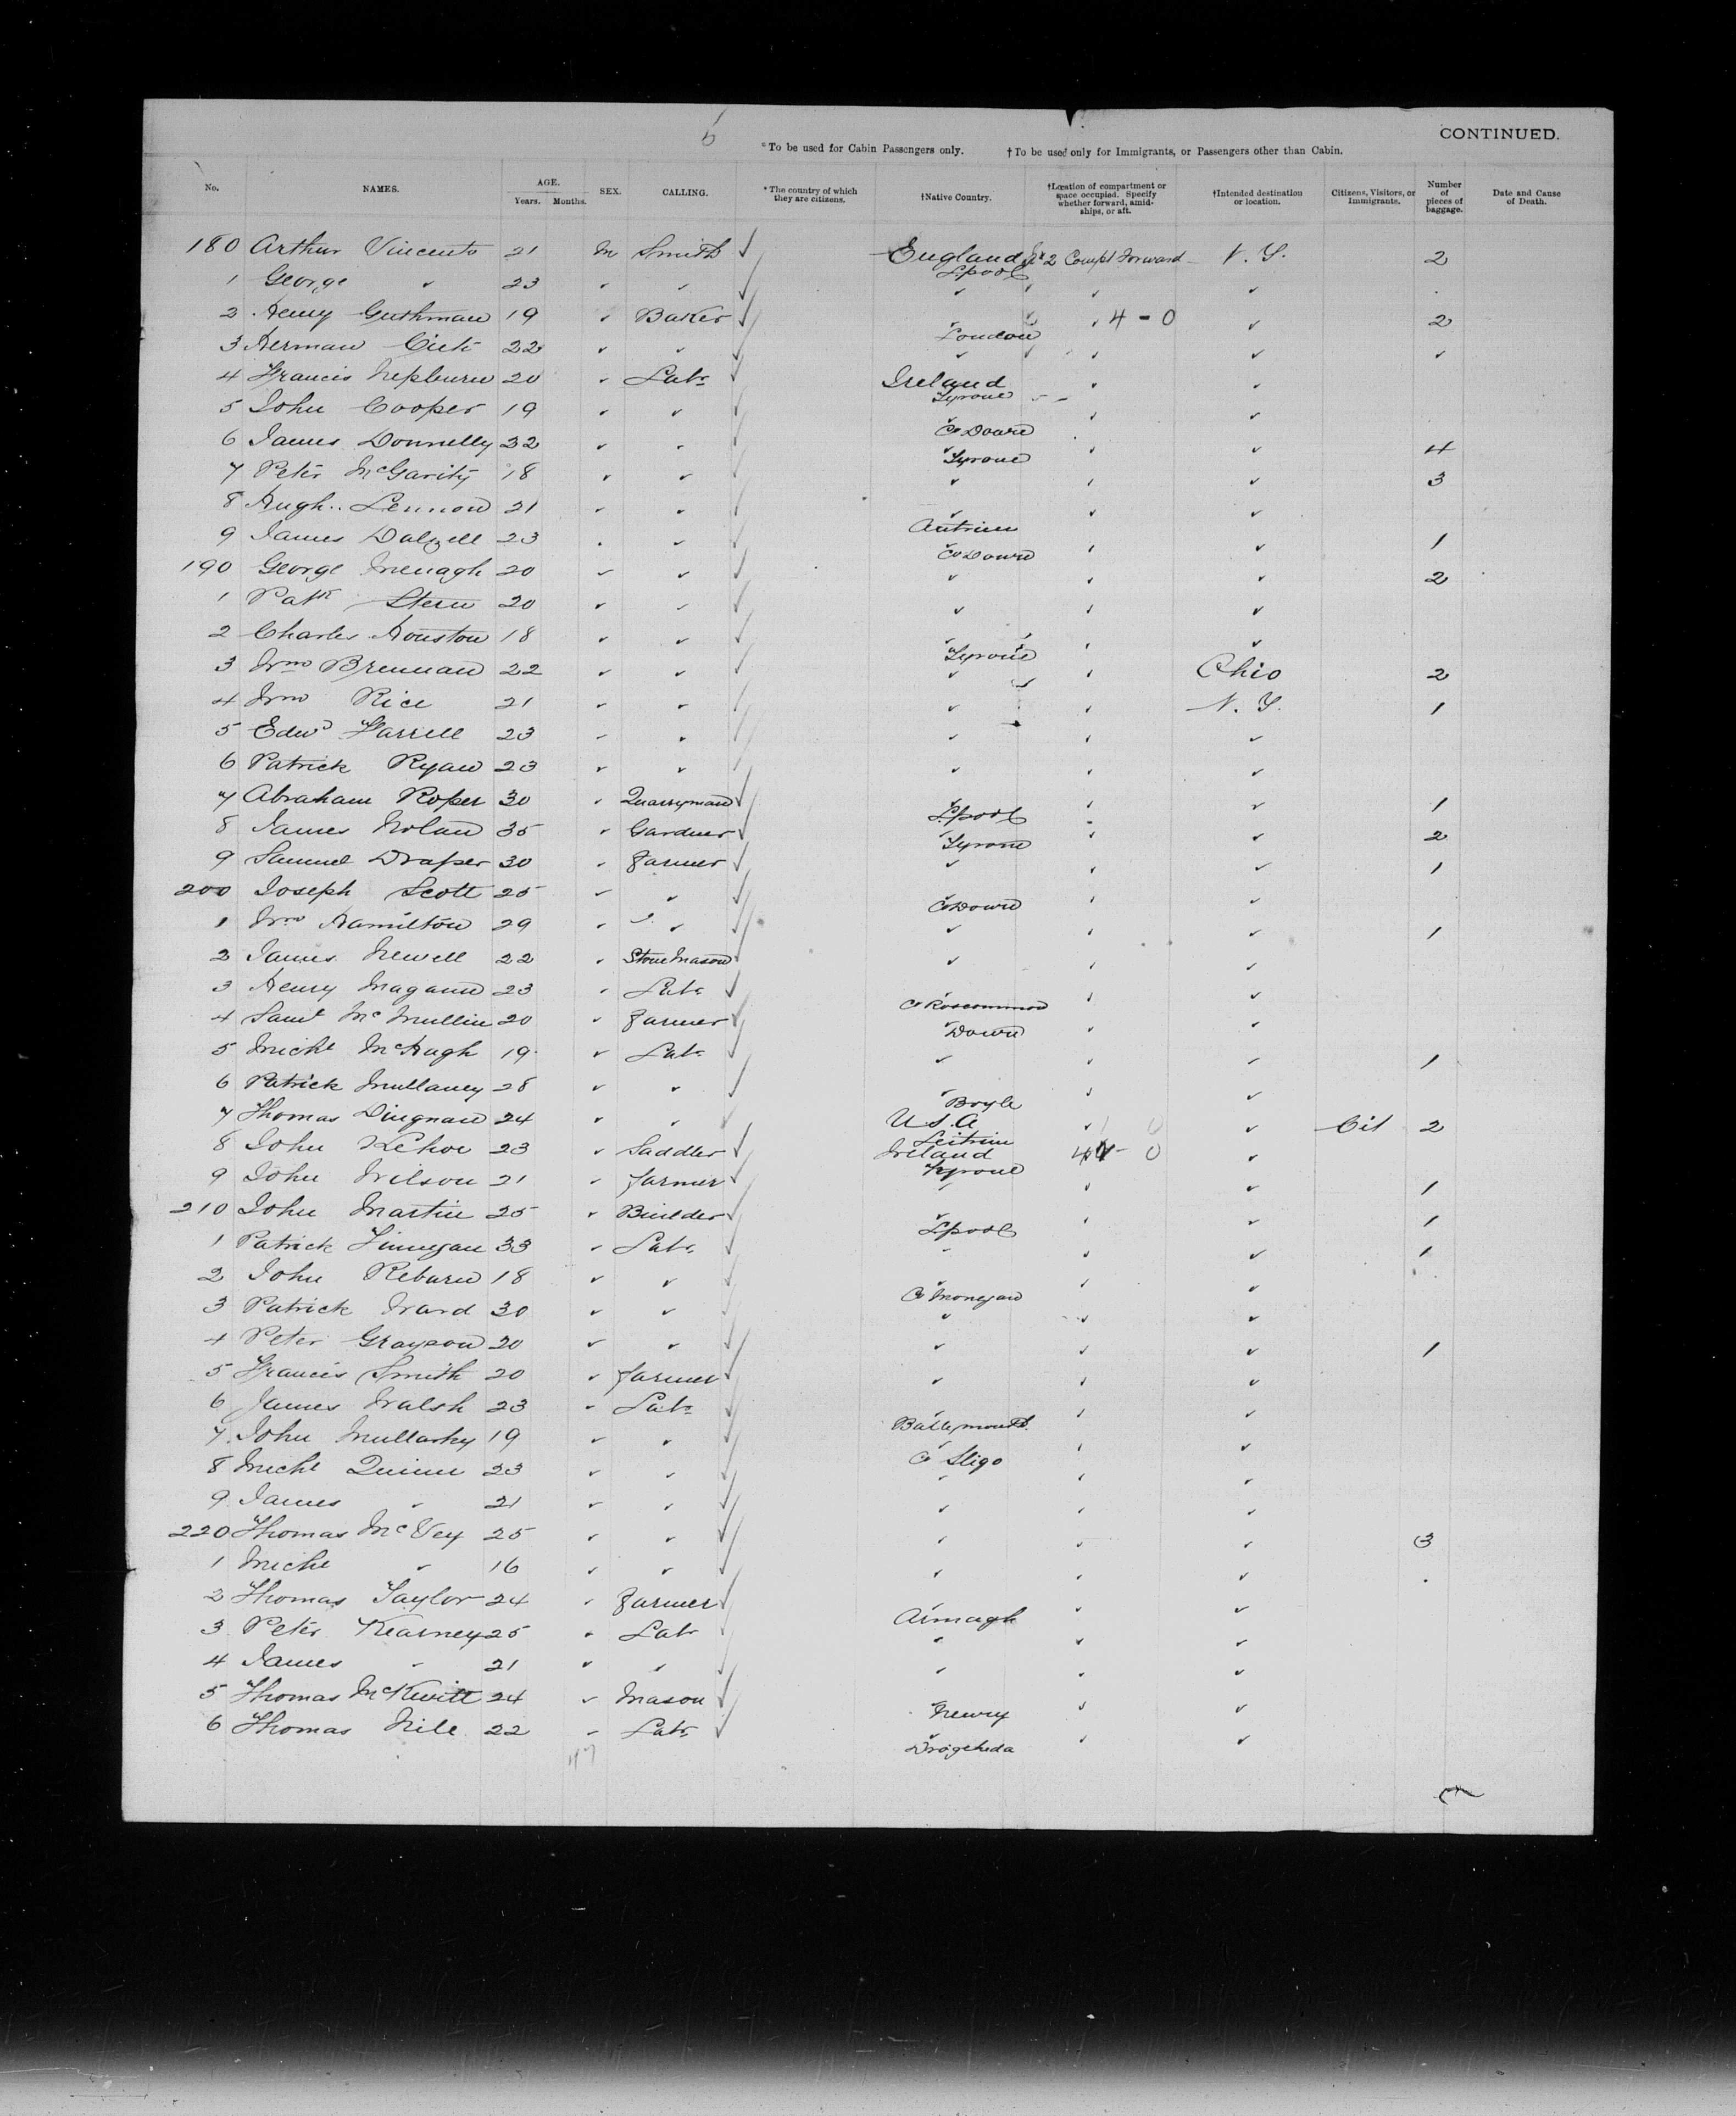 5
CONTINUED.
*To be used for Cabin Passengers only. †To be used only for Immigrants, or Passengers other than Cabin.
No. NAMES. AGE. Years. Months. SEX. CALLING. *The country of which they are citizens. †Native Country. †Location of compartment or space occupied. Specify whether forward, amidships, or aft. †Intended destination or location. Citizens, Visitors, or Immigrants. Number of pieces of baggage. Date and Cause of Death.
180 Arthur Vincents 21 M Smith ✓ England Lpool No 2 Compt Forward N. Y. 2
1 George " 23 " " ✓ " " " "
2 Henry Guthman 19 " Baker ✓ " London " 4 - 0 " 2
3 Herman 22 " " ✓ " " " "
4 Francis Hepburn 20 " Labr ✓ Ireland Tyrone " "
5 John Cooper 19 " " ✓ Co Down " "
6 James Donnelly 32 " " ✓ " Tyrone " " 4
7 Peter McGarity 18 " " ✓ " " " 3
8 Hugh Lennon 21 " " ✓ " Antrim " "
9 James Dalzell 23 " " ✓ " Co Down " " 1
190 George Menagh 20 " " ✓ " " " 2
1 Patk Stern 20 " " ✓ " " "
2 Charles Houston 18 " " ✓ " Tyrone " "
3 Wm Brennan 22 " " ✓ " " Ohio 2
4 Wm Rice 21 " " ✓ " " N. Y. 1
5 Edwd Farrell 23 " " ✓ " " "
6 Patrick Ryan 23 " " ✓ " " "
7 Abraham Roper 30 " Quarryman ✓ Lpool " " 1
8 James Nolan 35 " Gardner ✓ " Tyrone " " 2
9 Samuel Draper 30 " Farmer ✓ " " " 1
200 Joseph Scott 25 " " ✓ " Co Down " "
1 Wm Hamilton 29 " " ✓ " " " 1
2 James Newell 22 " Stone Mason ✓ " " "
3 Henry Magann 23 " Labr ✓ " Co Roscommon " "
4 Saml McMullin 20 " Farmer ✓ " Down " "
5 Michl McHugh 19 " Labr ✓ " " " 1
6 Patrick Mullaney 28 " " ✓ " Boyle " "
7 Thomas Dingnan 24 " " ✓ U S. A Leitrim " " Cit 2
8 John Kehoe 23 " Saddler ✓ Ireland Tyrone 4 - 0 "
9 John Wilson 21 " Farmer ✓ " " " 1
210 John Martin 25 " Builder ✓ " Lpool " " 1
1 Patrick Finnegan 33 " Labr ✓ " " " 1
2 John Reburn 18 " " ✓ " Co Monegan " "
3 Patrick Ward 30 " " ✓ " " "
4 Peter Grayson 20 " " ✓ " " " 1
5 Francis Smith 20 " Farmer ✓ " " "
6 James Walsh 23 " Labr ✓ " " "
7 John Mullarky 19 " " ✓ Co Sligo " "
8 Michl Quinn 23 " " ✓ " " "
9 James " 21 " " ✓ " " "
220 Thomas McVey 25 " " ✓ " " " 3
1 Michl " 16 " " ✓ " " "
2 Thomas Taylor 24 " Farmer ✓ " Armagh " "
3 Peter Kearney 25 " Labr ✓ " " "
4 James " 21 " " ✓ " " "
5 Thomas McKevitt 24 " Mason ✓ Newry " "
6 Thomas Nile 22 " Labr ✓ " Drogheda " "
47